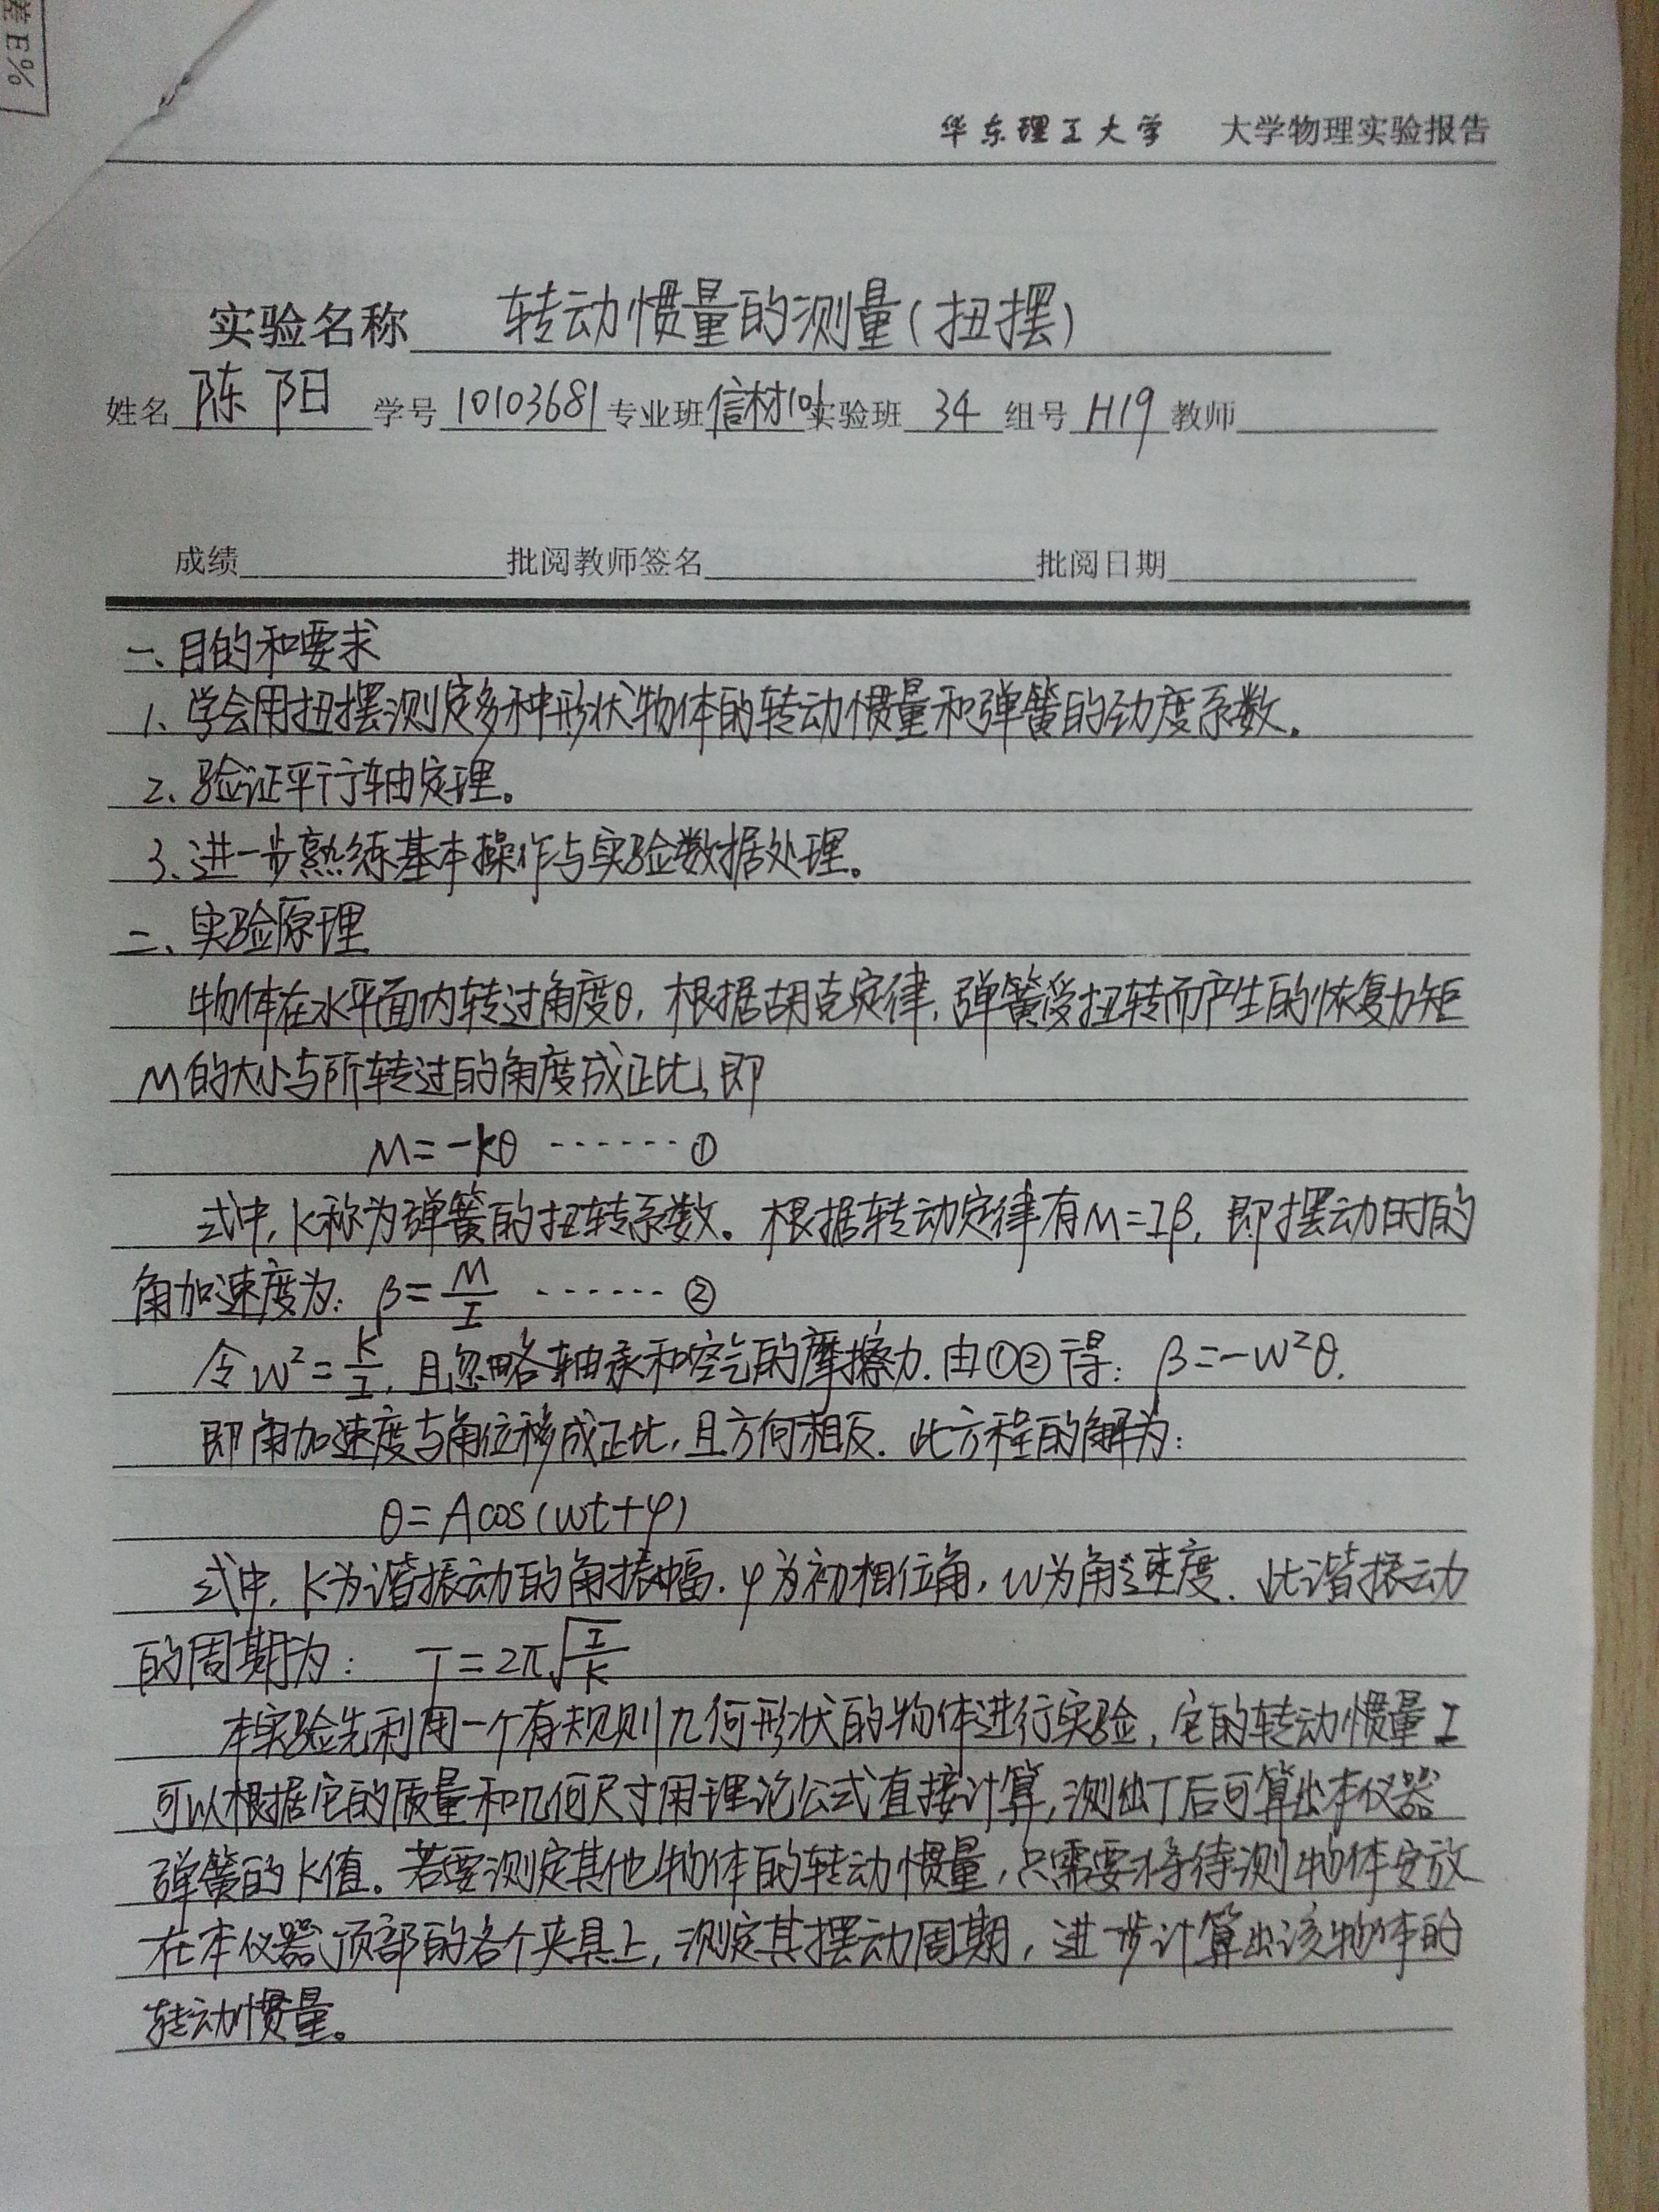 差E%
华东理工大学 大学物理实验报告
实验名称 转动惯量的测量(扭摆)
姓名 陈阳 学号 10103681 专业班 信材101 实验班 34 组号 H19 教师
成绩 批阅教师签名 批阅日期
一、目的和要求
1、学会用扭摆测定多种形状物体的转动惯量和弹簧的劲度系数。
2、验证平行轴定理。
3、进一步熟练基本操作与实验数据处理。
二、实验原理
物体在水平面内转过角度θ,根据胡克定律,弹簧受扭转而产生的恢复力矩
M的大小与所转过的角度成正比,即
M=-kθ ······· ①
式中,K称为弹簧的扭转系数。根据转动定律有M=Iβ,即摆动时的
角加速度为: β=M/I ······ ②
令w²=K/I,且忽略轴承和空气的摩擦力.由①②得: β=-w²θ.
即角加速度与角位移成正比,且方向相反.此方程的解为:
θ=Acos(wt+φ)
式中,K为谐振动的角振幅.φ为初相位角,w为角速度.此谐振动
的周期为: T=2π√(I/K)
本实验先利用一个有规则几何形状的物体进行实验,它的转动惯量I
可以根据它的质量和几何尺寸用理论公式直接计算,测出T后可算出本仪器
弹簧的K值。若要测定其他物体的转动惯量,只需要将待测物体安放
在本仪器顶部的各个夹具上,测定其摆动周期,进步计算出该物体的
转动惯量。